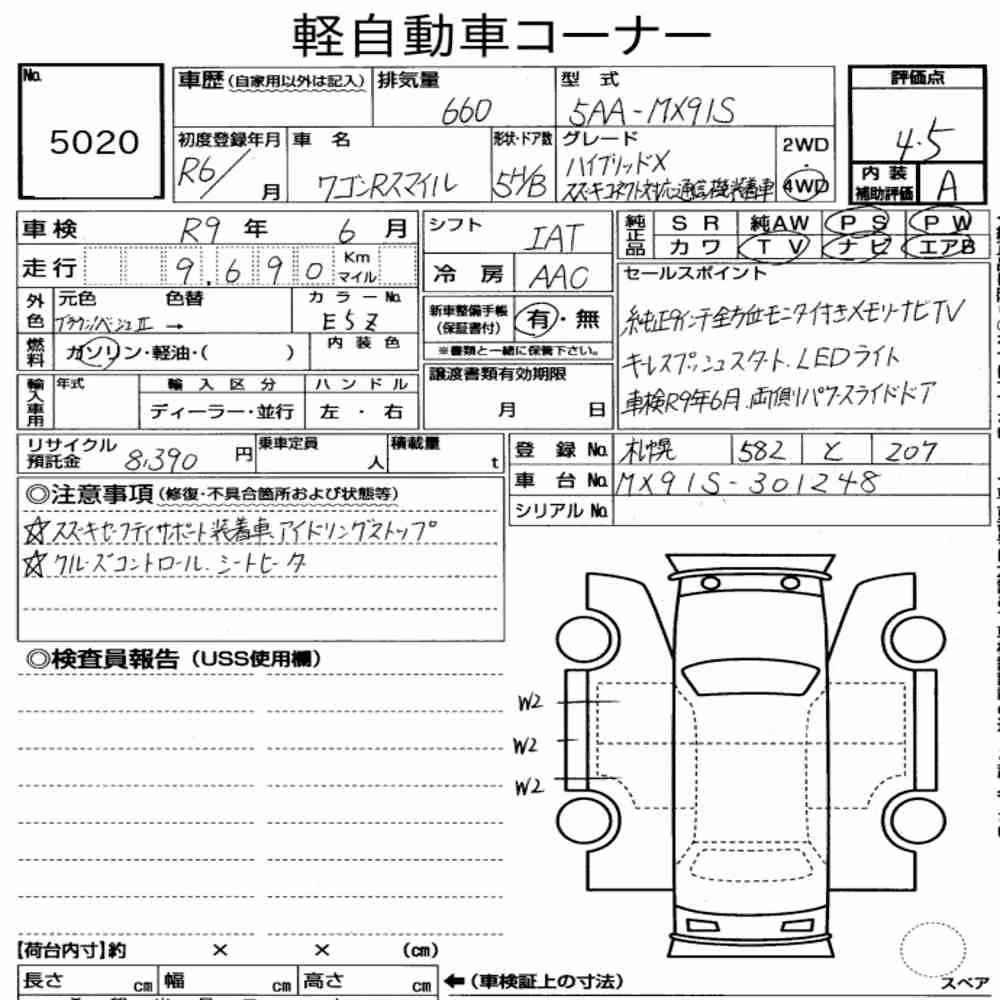 軽自動車コーナー
No. 5020
車歴(自家用以外は記入) 排気量 660 型式 5AA-MX91S
初度登録年月 R6/ 月 車名 ワゴンRスマイル 形状・ドア数 5H/B グレード ハイブリッドX スズキコネクト対応通信機装着車 2WD 4WD
評価点 4.5
内装補助評価 A
車検 R9年 6月
走行 9,690 Km マイル
外色 元色 色替 カラーNo. ブラウンベージュⅡ → E5Z
燃料 ガソリン・軽油・( ) 内装色
輸入車用 年式 輸入区分 ハンドル
ディーラー・並行 左・右
シフト IAT
冷房 AAC
新車整備手帳(保証書付) 有・無
※書類と一緒に保管下さい。
譲渡書類有効期限
月 日
純正品 SR 純AW PS PW
カワ TV ナビ エアB
セールスポイント
純正9インチ全方位モニタ付きメモリーナビTV
キーレスプッシュスタート、LEDライト
車検R9年6月、両側パワースライドドア
リサイクル預託金 8,390円 乗車定員 人 積載量 t
登録No. 札幌 582 と 207
車台No. MX91S-301248
シリアルNo.
◎注意事項(修復・不具合箇所および状態等)
☆スズキセーフティサポート装着車、アイドリングストップ
☆クルーズコントロール、シートヒータ
◎検査員報告(USS使用欄)
W2
W2
W2
【荷台内寸】約 × × (cm)
長さ cm 幅 cm 高さ cm ←(車検証上の寸法)
スペア